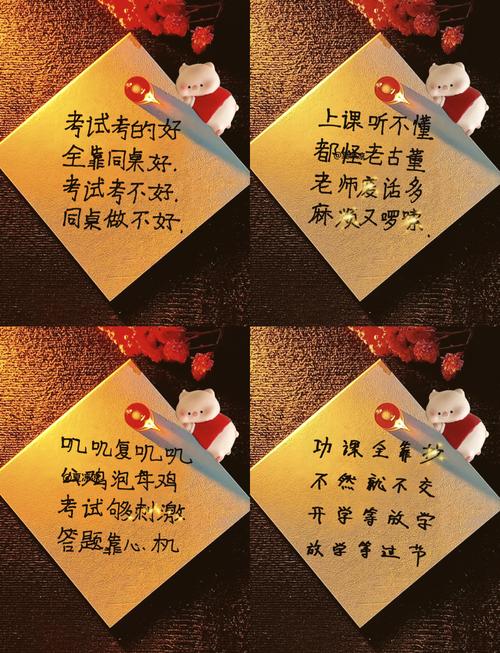 考试考的好
全靠同桌好.
考试考不好.
同桌做不好.
上课听不懂
都怪老古董
老师废话多
麻烦又啰嗦.
叽叽复叽叽
鸡泡母鸡
考试够刺激
答题靠心机
功课全靠抄
不然就不交
开学等放学
放学等过节